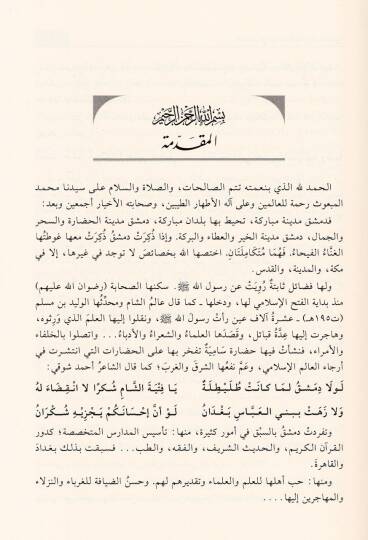 بسم الله الرحمن الرحيم
المقدّمة
الحمد لله الذي بنعمته تتم الصالحات، والصلاة والسلام على سيدنا محمد
المبعوث رحمة للعالمين وعلى آله الأطهار الطيبين، وصحابته الأخيار أجمعين وبعد:
فدمشق مدينة مباركة، تحيط بها بلدان مباركة، دمشق مدينة الحضارة والسحر
والجمال، دمشق مدينة الخير والعطاء والبركة. وإذا ذُكِرَتْ دمشقُ ذُكِرَتْ معها غوطتُها
الغنَّاءُ الفيحاءُ. فَهُمَا مُتَكَامِلَتَانِ. اختصها الله بخصائصَ لا توجد في غيرها، إلا في
مكة، والمدينة، والقدس.
ولها فضائل ثابتةٌ رُوِيَتْ عن رسول الله ﷺ. سكنها الصحابة (رضوان الله عليهم)
منذ بداية الفتح الإسلامي لها، ودخلها ـ كما قال عالمُ الشام ومحدِّثُها الوليد بن مسلم
(ت١٩٥هـ) ـ عشرةُ آلاف عين رأتْ رسولَ الله ﷺ، ونقلوا إليها العلمَ الذي وَرِثوه،
وهاجرت إليها عِدَّةُ قبائل، وقَصَدَها العلماءُ والشعراءُ والأدباءُ... واتصلوا بالخلفاء
والأمراء، فنشأت فيها حضارة سَامِيَةٌ تفخر بها على الحضارات التي انتشرت في
أرجاء العالم الإسلامي، وعَمَّ نفعُها الشرقَ والغربَ؛ كما قال الشاعرُ أحمد شوقي:
لَولَا دِمَشْقُ لمَا كانَتْ طُلَيْطِلَةٌ يا فِتْيَةَ الشَّامِ شُكرًا لا انْقِضَاءَ لهُ
ولا زَهَتْ ببني العبَّاسِ بَغْدَانُ لَوْ أنَّ إحْسَانَكُمْ يَجْزِيهِ شُكْرَانُ
وتفردتْ دمشقُ بالسبْقِ في أمور كثيرة، منها: تأسيس المدارس المتخصصة؛ كدور
القرآن الكريم، والحديث الشريف، والفقه، والطب... فسبقت بذلك بغدادَ
والقاهرةَ.
ومنها: حب أهلها للعلم والعلماء وتقديرهم لهم. وحسنُ الضيافة للغرباء والنزلاء
والمهاجرين إليها....